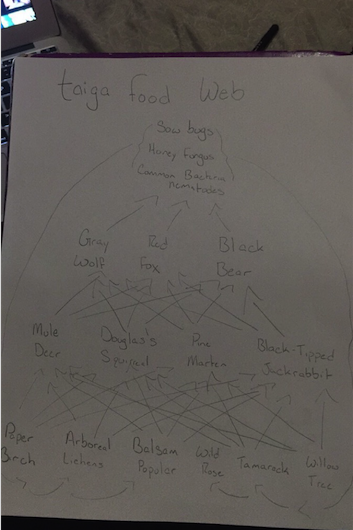 taiga food Web
Sow bugs
Honey Fungus
Common Bacteria
nematodes
Gray Wolf
Red Fox
Black Bear
Mule Deer
Douglas's Squirrel
Pine Marten
Black-Tipped Jackrabbit
Paper Birch
Arboreal Lichens
Balsam Popular
Wild Rose
Tamarack
Willow Tree